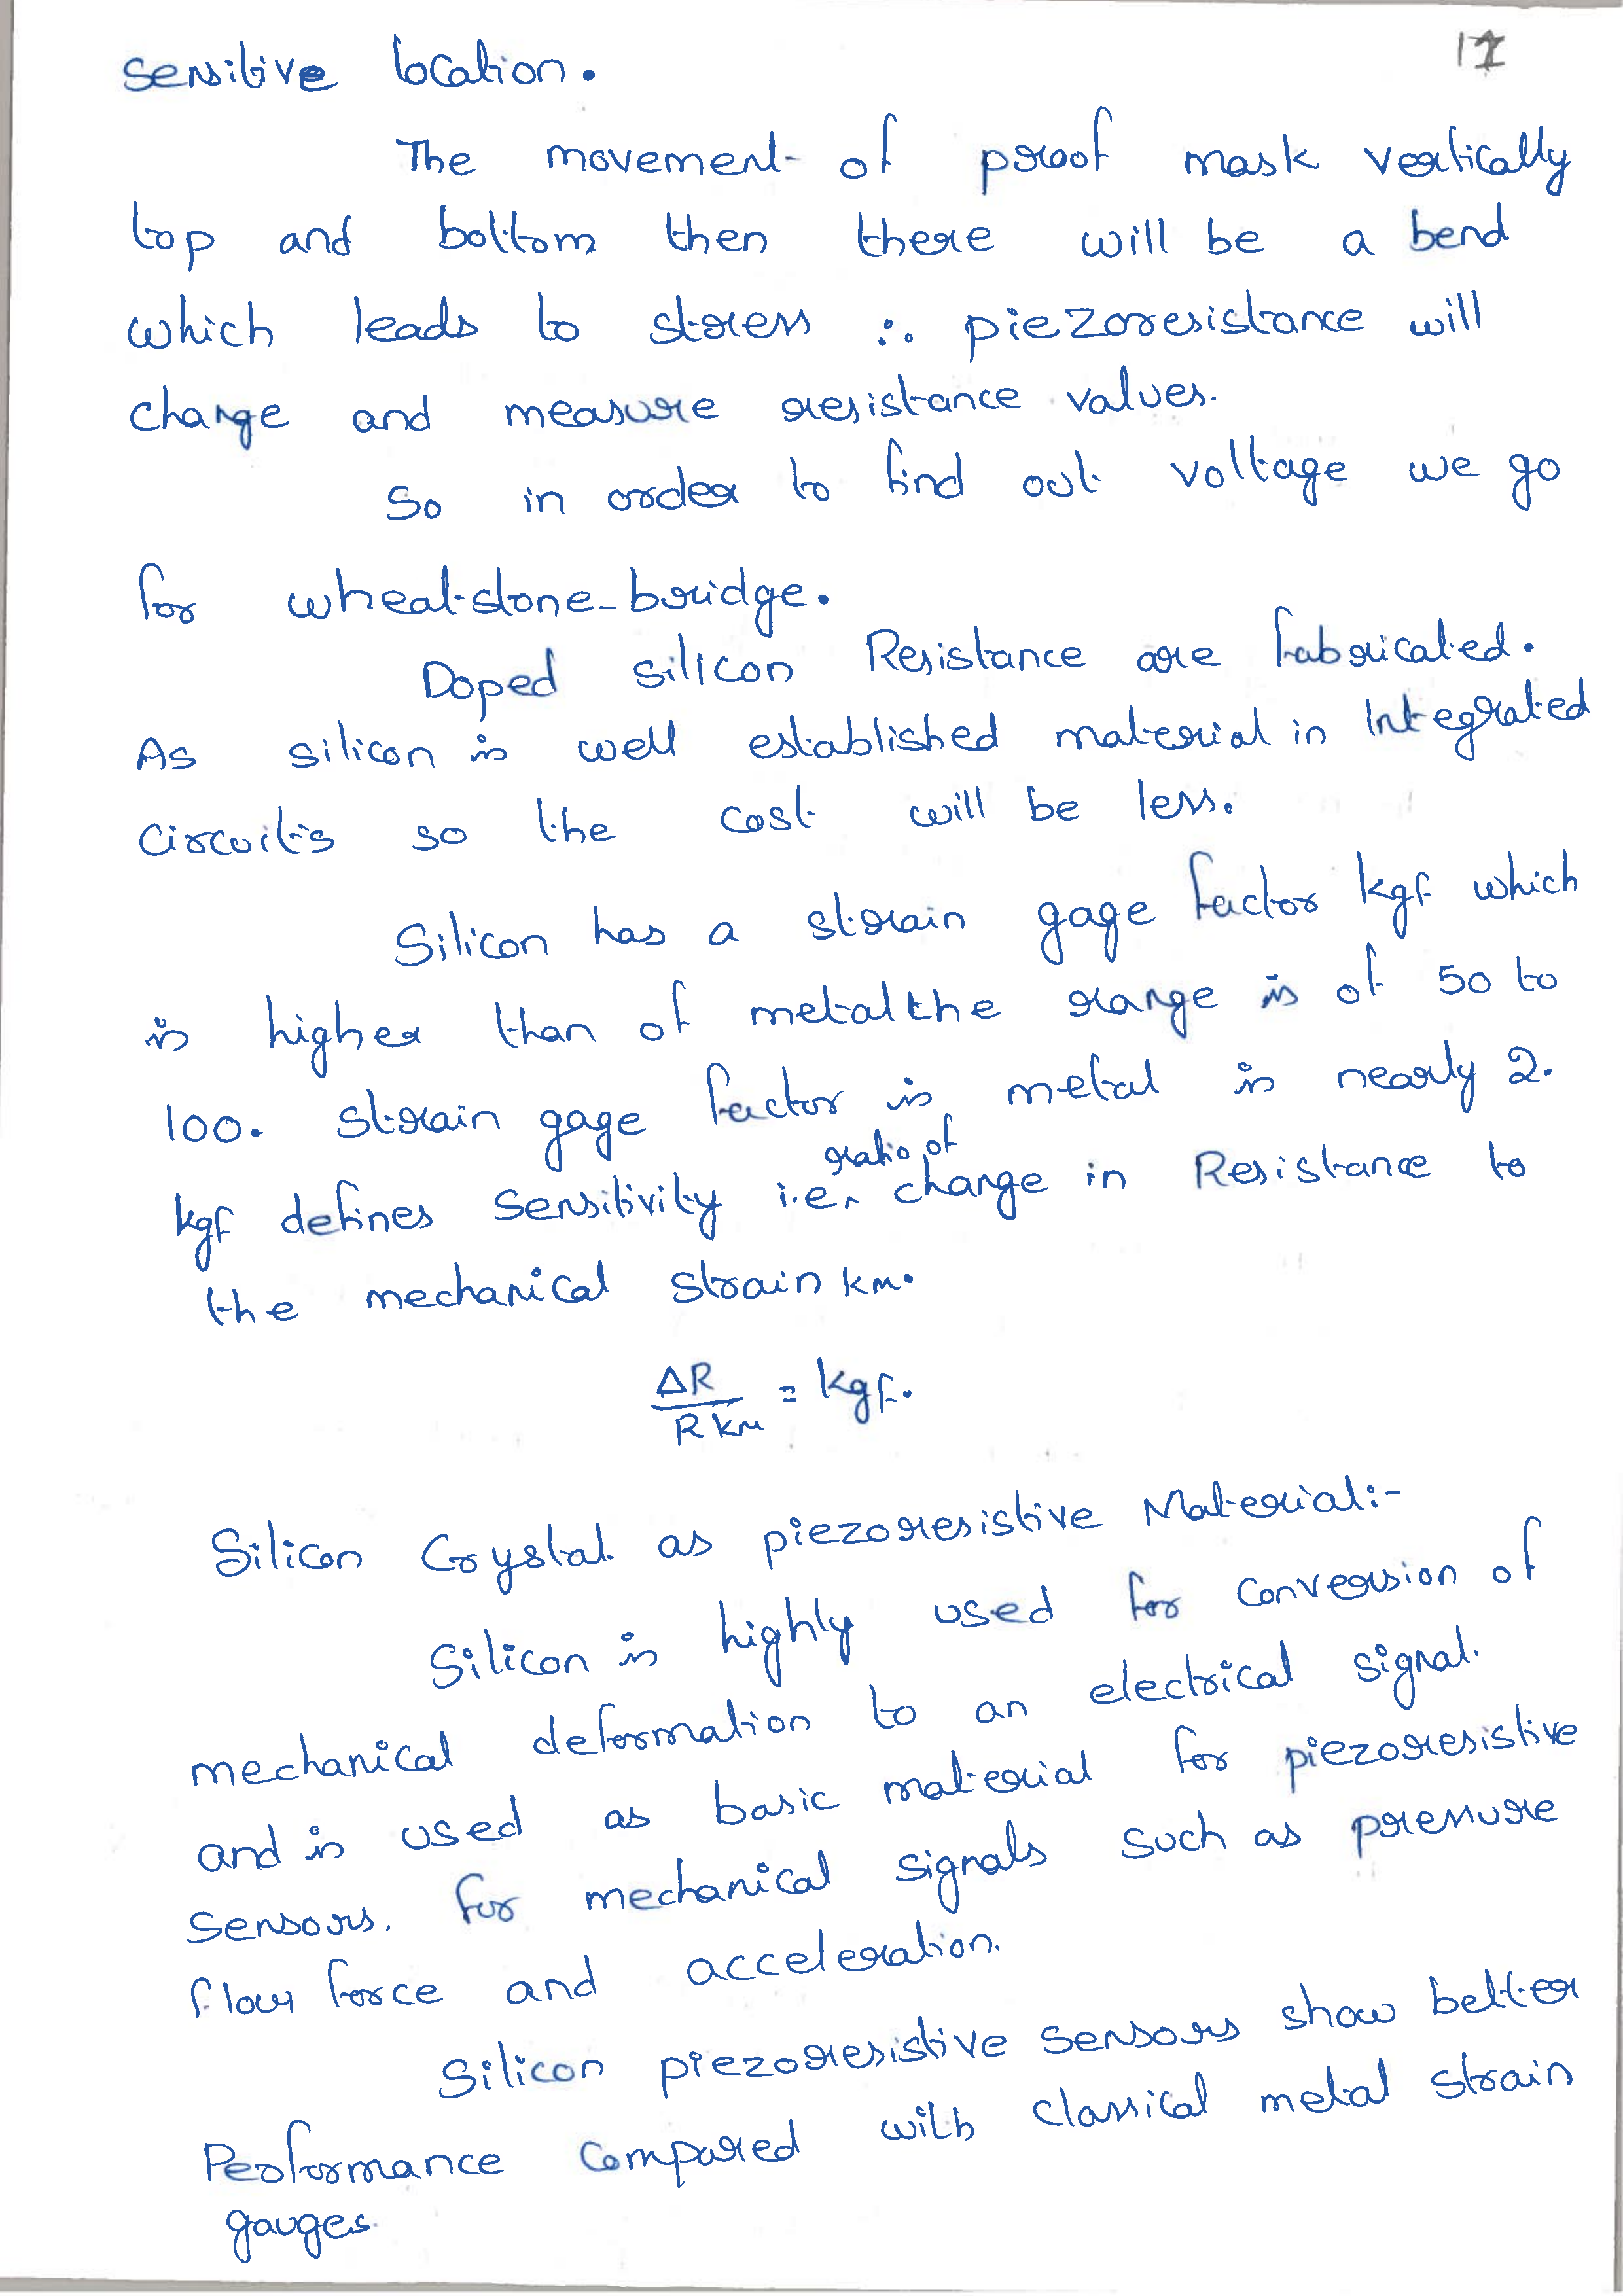 17
sensitive location.
The movement of proof mask vertically
top and bottom then there will be a bend
which leads to stress ∴ piezoresistance will
change and measure resistance values.
So in order to find out voltage we go
for wheatstone-bridge.
Doped silicon Resistance are fabricated.
As silicon is well established material in Integrated
Circuits so the cost will be less.
Silicon has a strain gage factor kgf which
is higher than of metal the range is of 50 to
100. strain gage factor is metal is nearly 2.
ratio of
kgf defines sensitivity i.e, change in Resistance to
the mechanical strain km.
ΔR/R km = kgf.
Silicon Crystal as piezoresistive Material:-
Silicon is highly used for conversion of
mechanical deformation to an electrical signal.
and is used as basic material for piezoresistive
sensors. for mechanical signals such as pressure
flow force and acceleration.
Silicon piezoresistive sensors show better
Performance compared with classical metal strain
gauges.